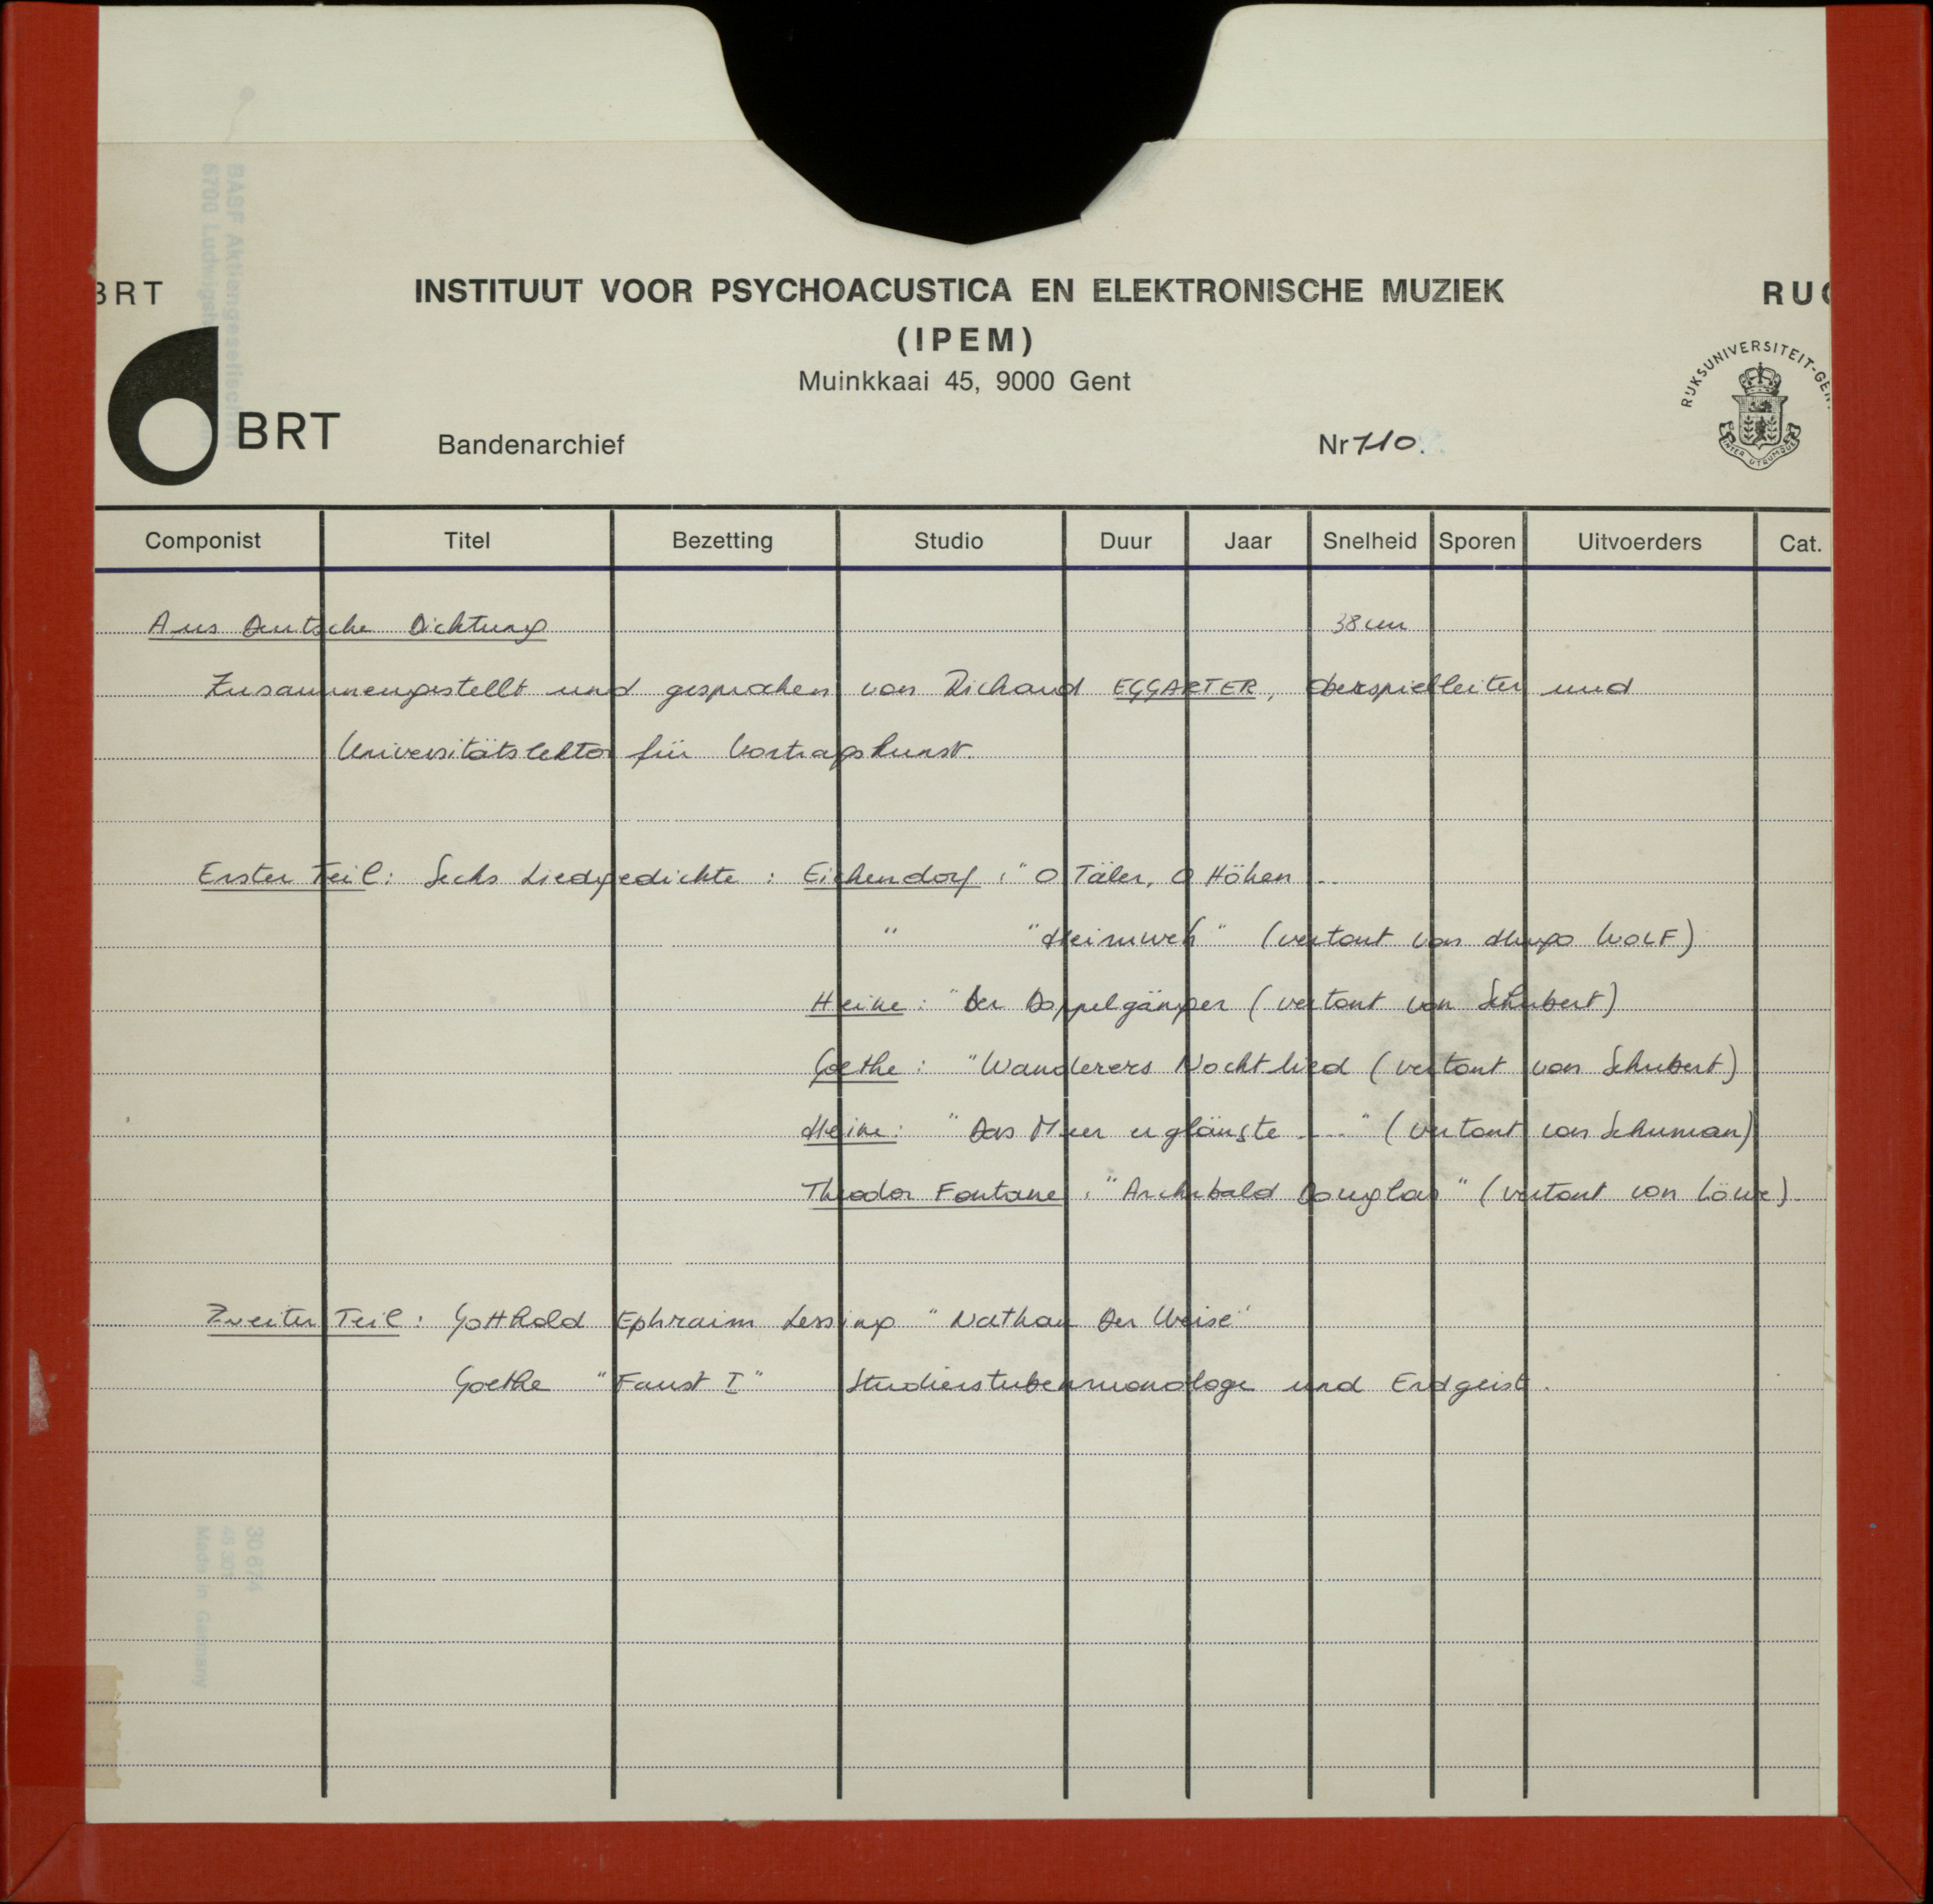 BRT
INSTITUUT VOOR PSYCHOACUSTICA EN ELEKTRONISCHE MUZIEK
RUG
(IPEM)
Muinkkaai 45, 9000 Gent
RIJKSUNIVERSITEIT-GENT
INTER UTRUMQUE
BRT
Bandenarchief
Nr 110.
Componist Titel Bezetting Studio Duur Jaar Snelheid Sporen Uitvoerders Cat.
Aus Deutsche Dichtung 38 cm
Zusammengestellt und gesprochen von Richard EGGARTER, Oberspielleiter und
Universitätslektor für Vortragskunst.
Erster Teil: Sechs Liedgedichte : Eichendorf : "O Täler, O Höhen ...
" "Heimweh" (vertont von Hugo WOLF)
Heine : "Der Doppelgänger (vertont von Schubert)
Goethe : "Wanderers Nachtlied (vertont von Schubert)
Heine : "Das Meer erglänzte ...." (vertont von Schuman)
Theodor Fontane : "Archibald Douglas" (vertont von Löwe).
Zweiter Teil : Gotthold Ephraim Lessing "Nathan Der Weise"
Goethe "Faust I" Studierstubenmonologe und Erdgeist.
BASF Aktiengesellschaft
6700 Ludwigsh
30 674
Made in Germany